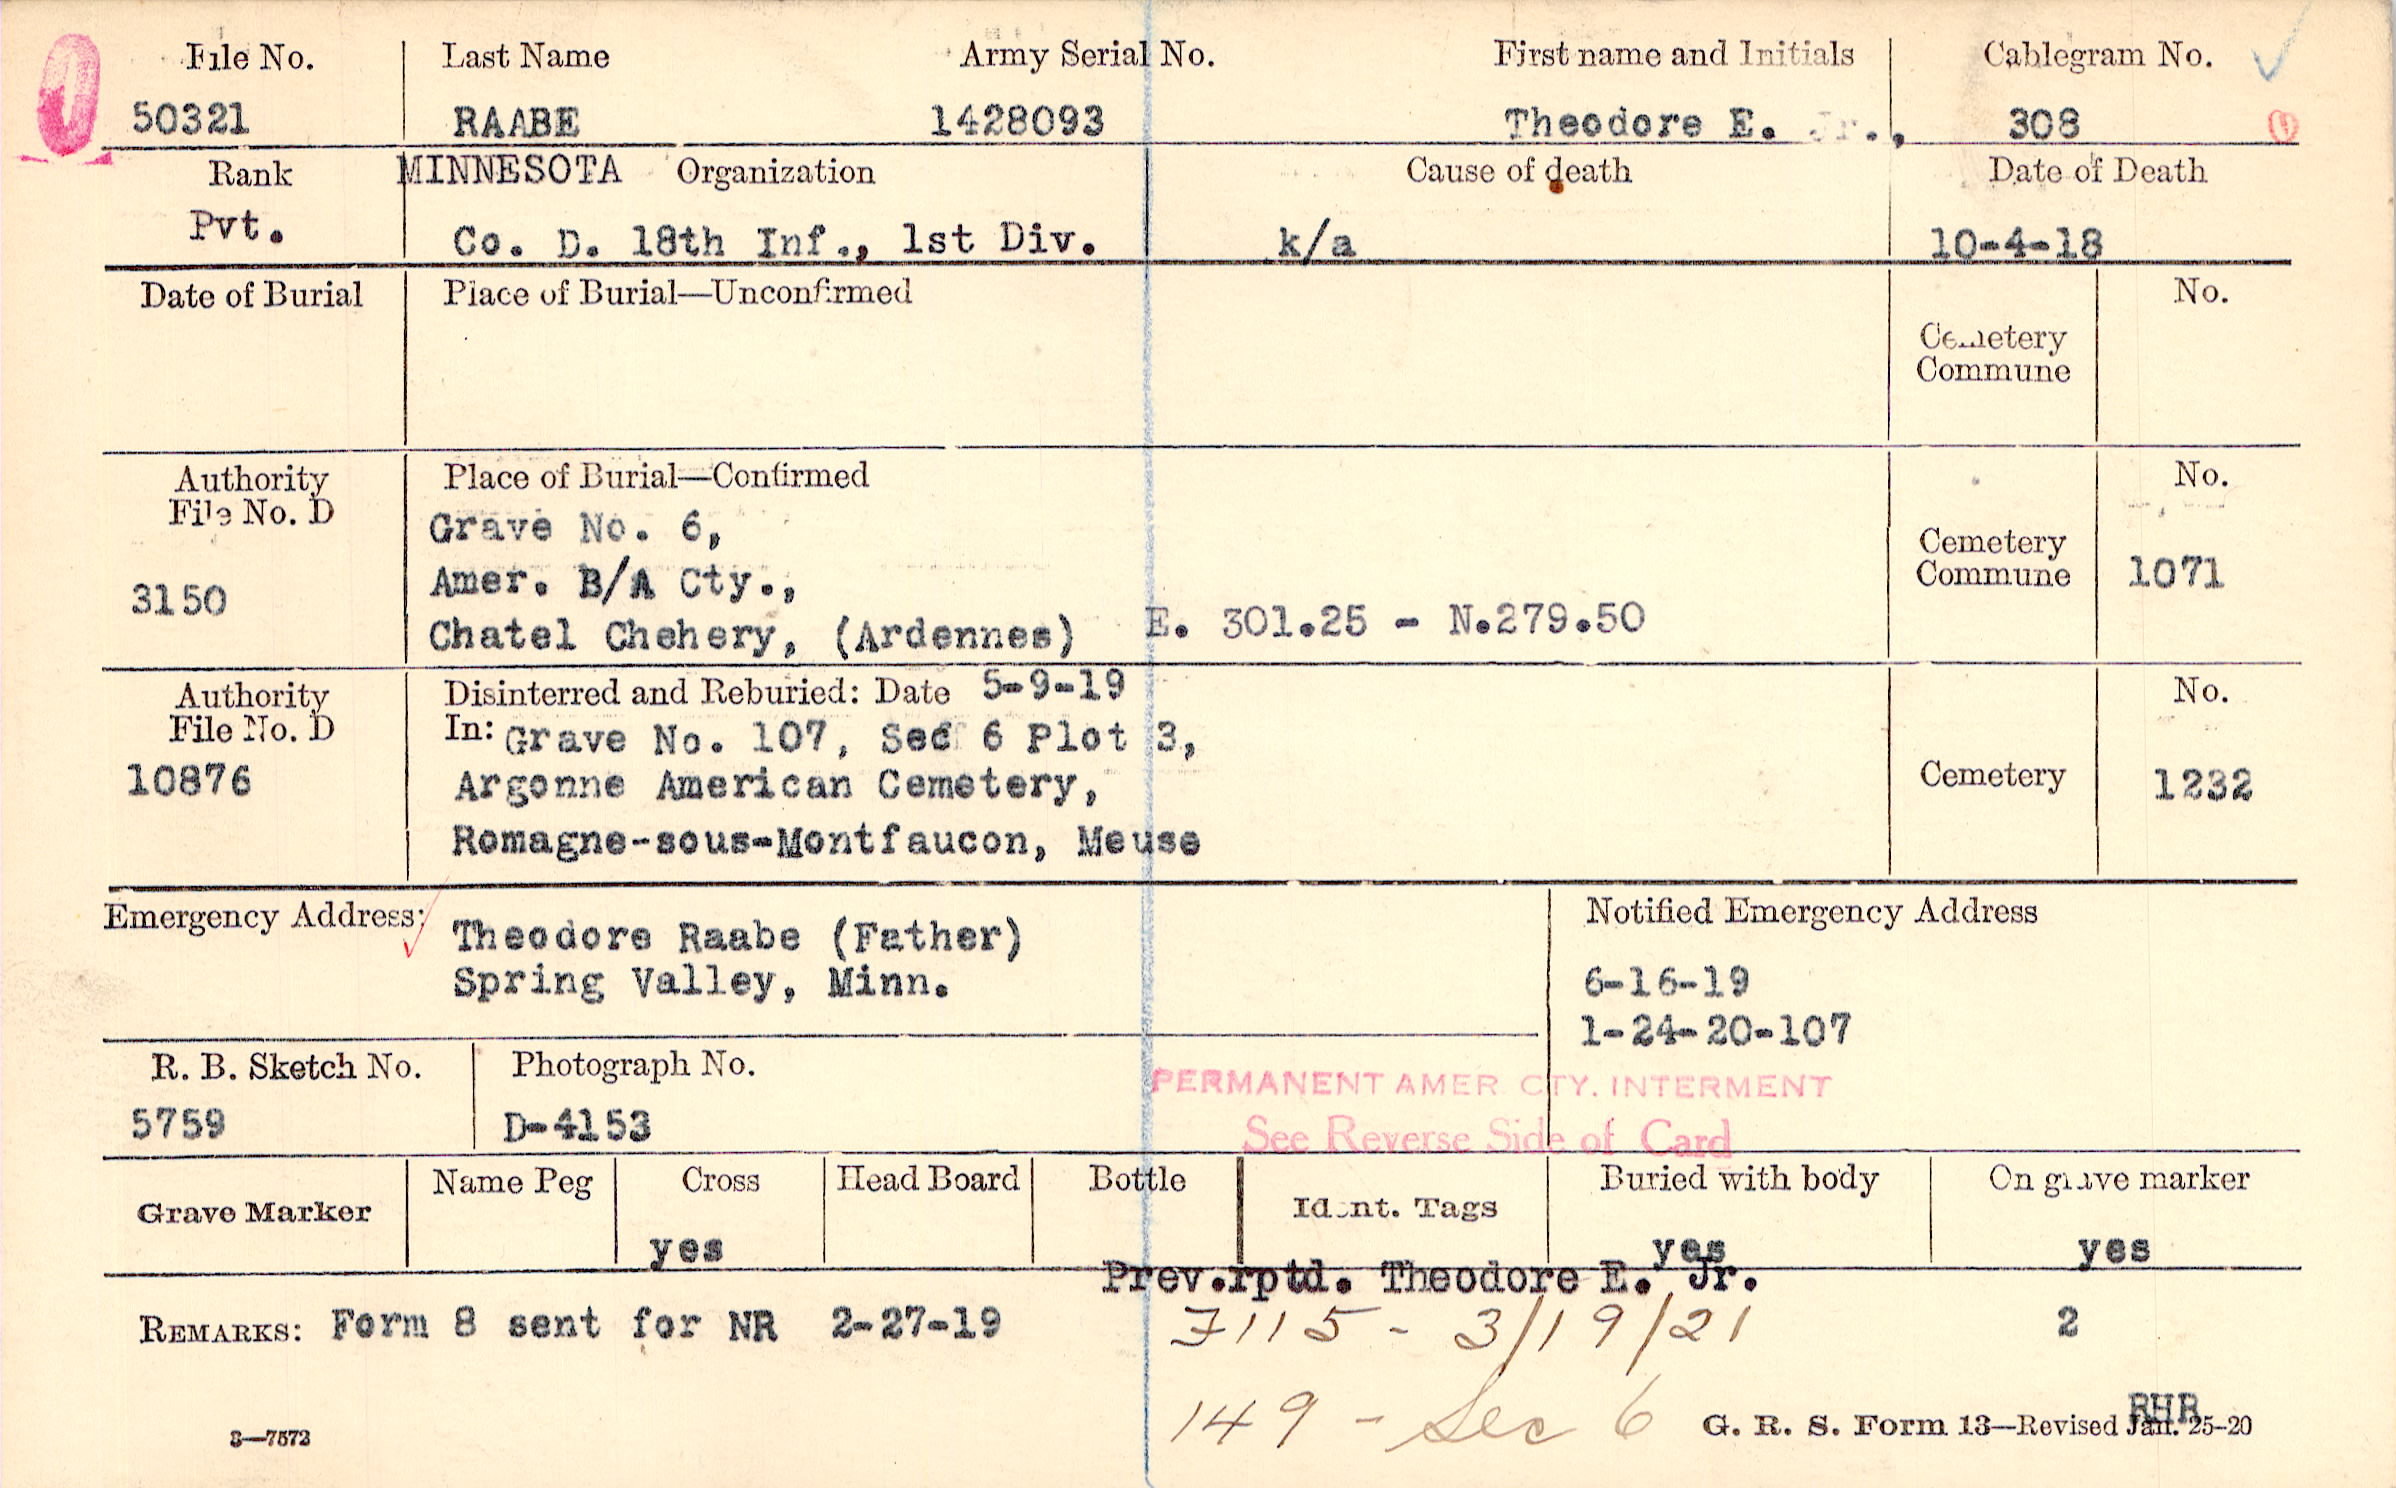 File No. Last Name Army Serial No. First name and Initials Cablegram No.
50321 RAABE 1428093 Theodore E. Jr., 308
Rank MINNESOTA Organization Cause of death Date of Death
Pvt. Co. D. 18th Inf., 1st Div. k/a 10-4-18
Date of Burial Place of Burial—Unconfirmed No.
Cemetery
Commune
Authority Place of Burial—Confirmed No.
File No. D Grave No. 6,
Amer. B/A Cty., Cemetery
3150 Commune 1071
Chatel Chehery, (Ardennes) E. 301.25 - N.279.50
Authority Disinterred and Reburied: Date 5-9-19 No.
File No. D In: Grave No. 107, Sec 6 Plot 3,
10876 Argonne American Cemetery, Cemetery 1232
Romagne-sous-Montfaucon, Meuse
Emergency Address: Theodore Raabe (Father) Notified Emergency Address
Spring Valley, Minn. 6-16-19
1-24-20-107
R. B. Sketch No. Photograph No.
PERMANENT AMER CTY. INTERMENT
5759 D-4153 See Reverse Side of Card
Name Peg Cross Head Board Bottle Buried with body On grave marker
Grave Marker Ident. Tags
yes yes yes
Prev.rptd. Theodore E. Jr.
REMARKS: Form 8 sent for NR 2-27-19 7115 - 3/19/21 2
149 - Sec 6 RHR
3—7572 G. R. S. Form 13—Revised Jan. 25-20